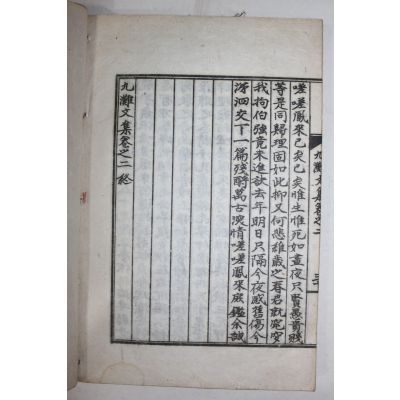 九灘文集卷之二
嗟嗟鳳來已矣已矣惟生惟死如晝夜只賢愚貴賤
等是同歸理固如此抑又何悲雄歲之春君就窀穸
我拘伯强竟未進訣去年明日只隔今夜感舊傷今
涕泗交下一篇殘酹萬古深情嗟嗟鳳來庶鑑余誠
九灘文集卷之二終